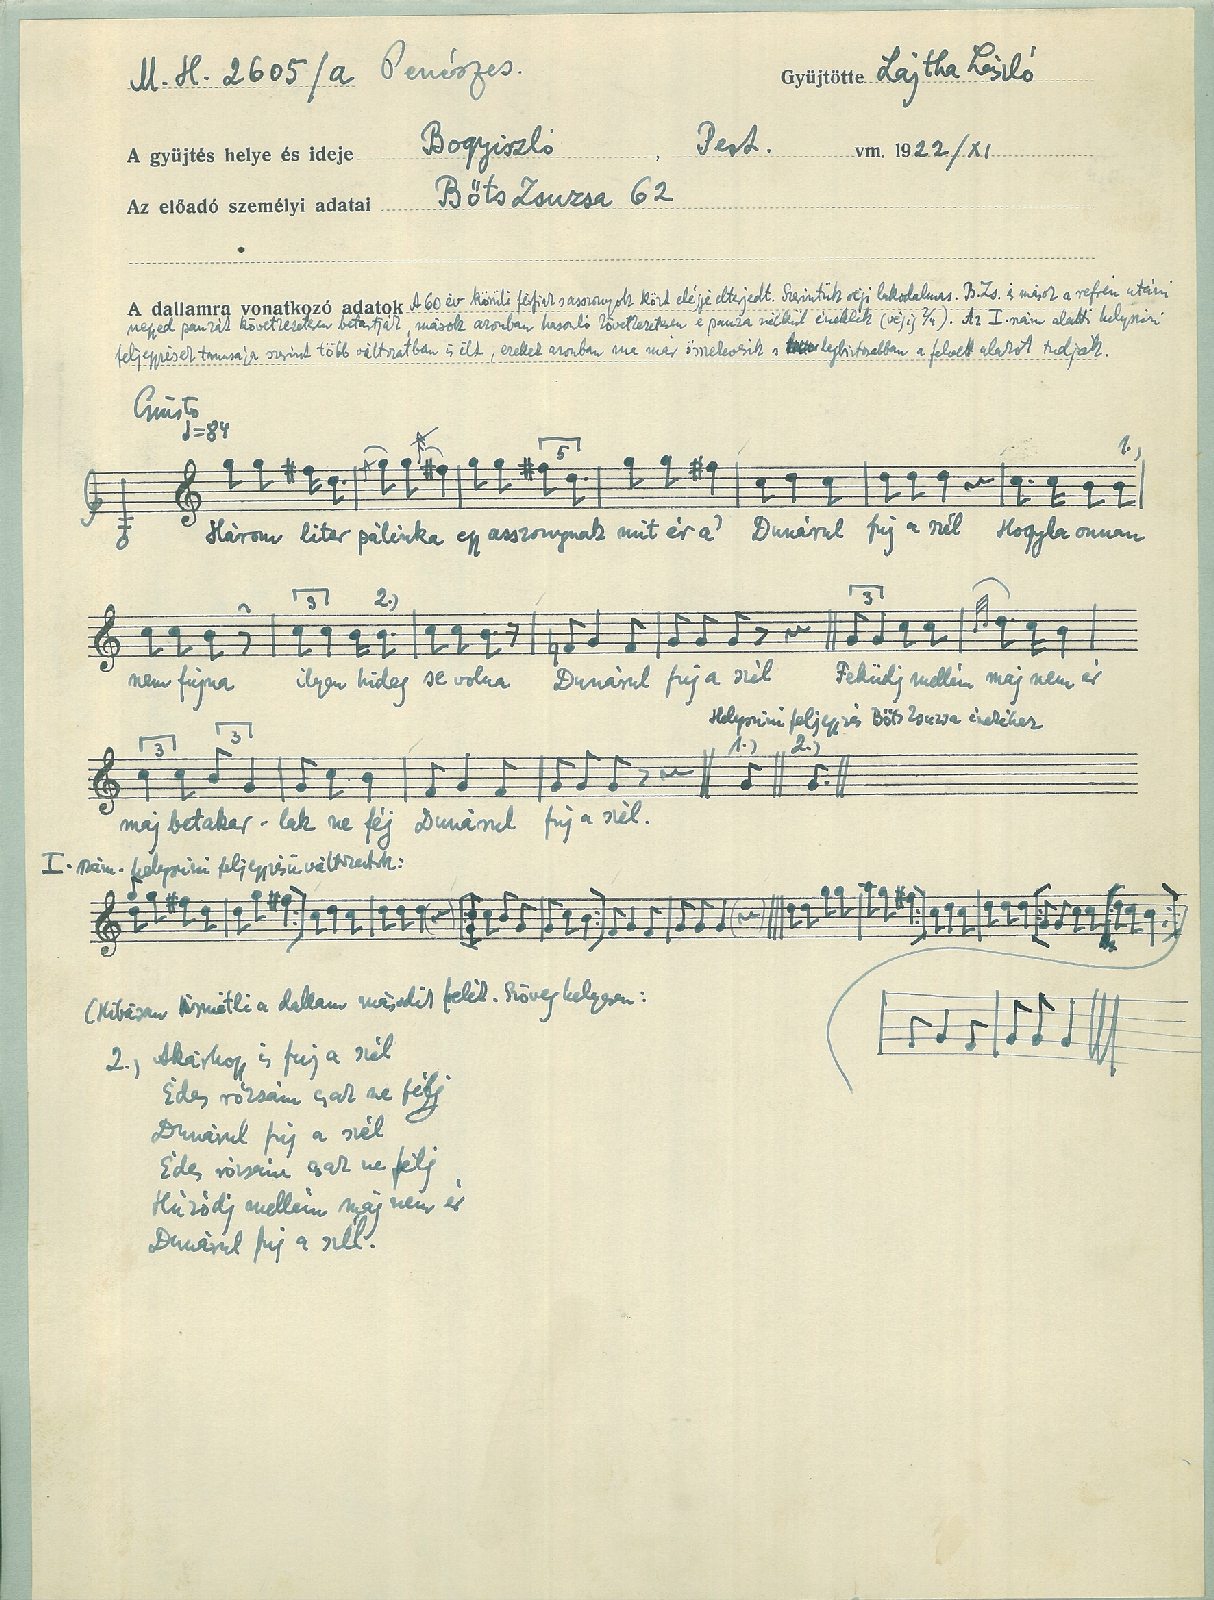 M. H. 2605/a Penészes.
Gyüjtötte Lajtha László
A gyüjtés helye és ideje Bogyiszló, Pest. vm. 1922/XI
Az előadó személyi adatai Bőts Zsuzsa 62
A dallamra vonatkozó adatok A 60 év körüli férfiak s asszonyok közt eléggé elterjedt. Szerintük régi lakodalmas. B. Zs. és mások a refrén utáni
negyed pauzát következetesen betartják, mások azonban hasonló következetesen e pauza nélkül éneklik (végig 2/4). Az I. szám alatti helyszíni
feljegyzések tanusága szerint több változatban is élt, ezeket azonban ma már összekeverik s legbiztosabban a felvett alakot tudják.
Giusto
=84
5
1.)
Három liter pálinka egy asszonynak mit ér a? Dunárul fuj a szél Hogyha onnan
3 2.) 3
nem fujna ilyen hideg se volna Dunárul fuj a szél Feküdj mellém maj nem ér
Helyszíni feljegyzés Bőts Zsuzsa énekéhez
3 3 1.) 2.)
maj betakar-lak ne féj Dunárul fuj a szél.
I. szám. helyszíni feljegyzésű változatok:
(Hibásan ismétli a dallam második felét. Szöveg helyesen:
2., Akárhogy is fuj a szél
Édes rózsám csak ne félj
Dunárul fuj a szél
Édes rózsám csak ne félj
Húzódj mellém maj nem ér
Dunárul fuj a szél.